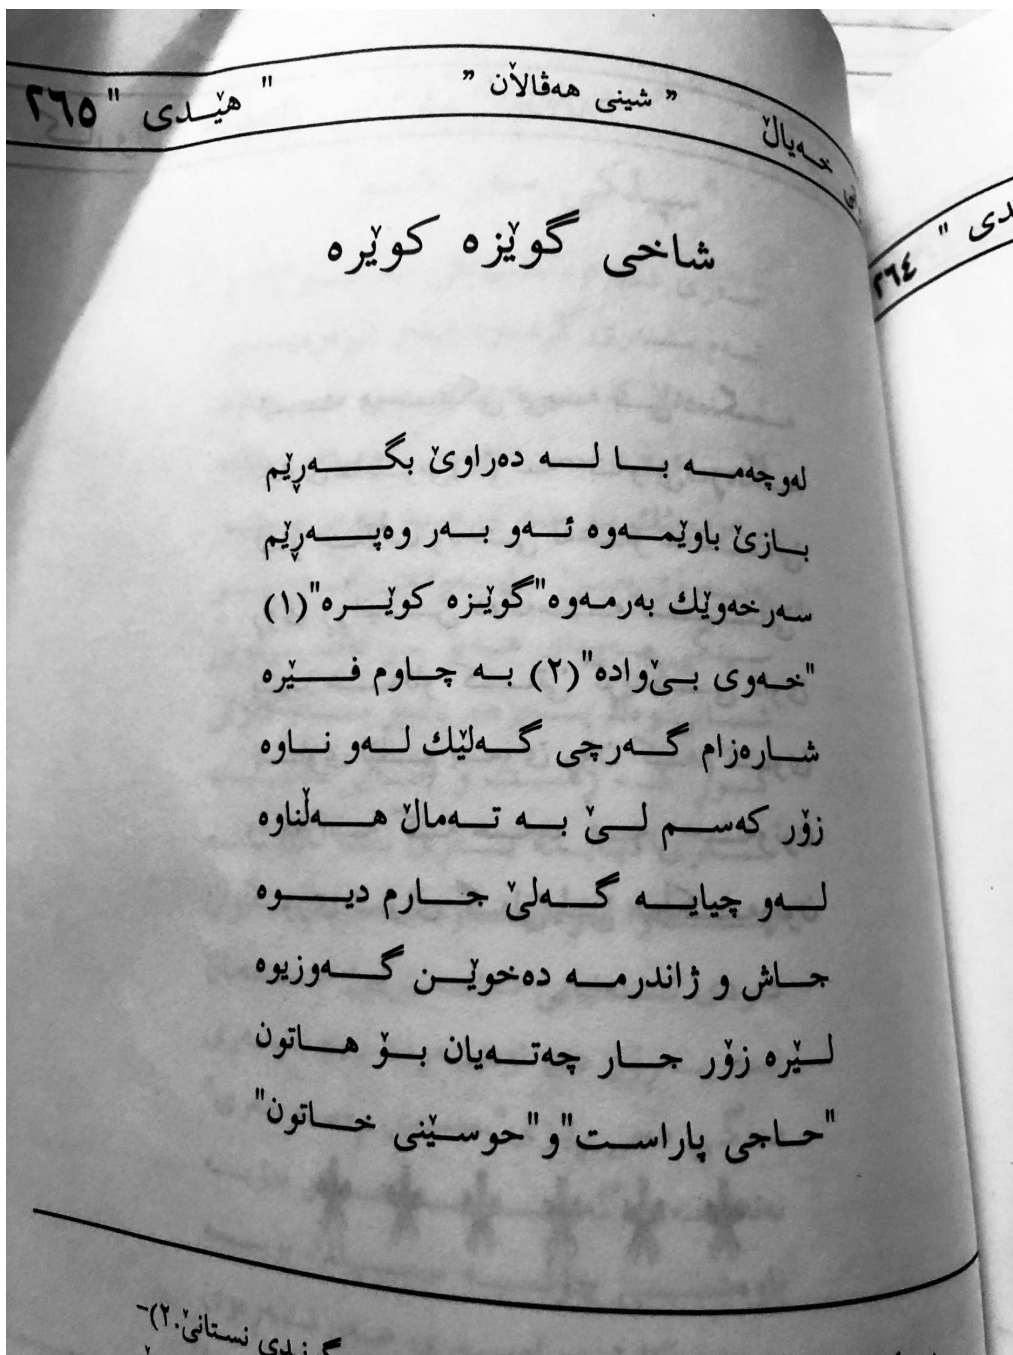 خەیاڵ " شینی هەڤاڵان " " هێدی " ٢٦٥
دی "
٢٦٤
شاخی گوێزه کوێره
لەوچەمـــه بـــا لـــه دەراوێ بگــــەڕێم
بــازێ باوێمــەوه ئــەو بــەر وەپــــەڕێم
سەرخەوێك بەرمـەوه"گوێـزه کوێــره"(١)
"خـەوی بـێ‌واده"(٢) بـه چـاوم فـــێره
شــارەزام گــەرچی گــەلێك لــەو نــاوه
زۆر کەســم لــێ بــه تــەماڵ هــەڵناوه
لــەو چیایــه گــەلێ جــارم دیــوه
جــاش و ژاندرمــه دەخوێــن گــەوزیوه
لــێره زۆر جــار چەتــەیان بــۆ هــاتون
"حــاجی پاراســت"و"حوسـێنی خــاتون"
گـوندی نستانێ.٢)-